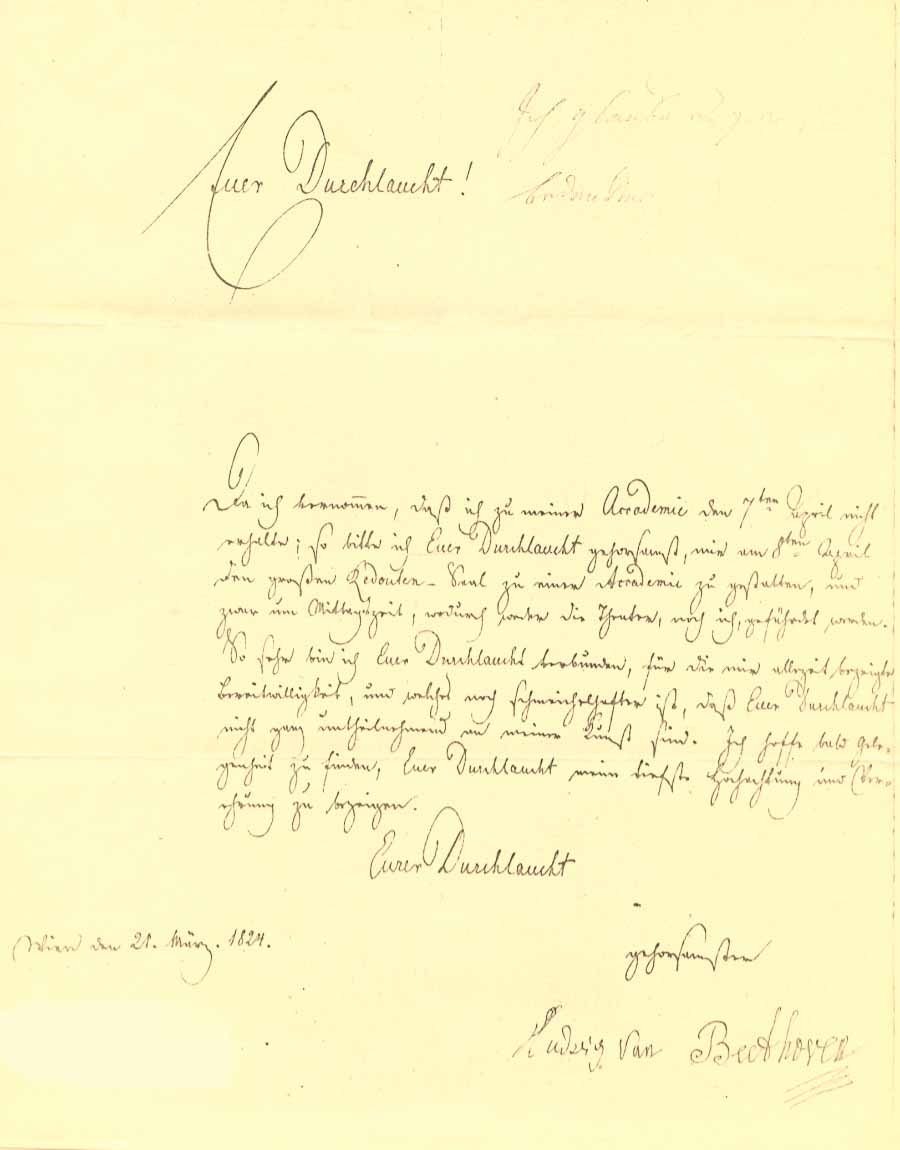 Ich glaube
Euer Durchlaucht!
Da ich vernom̅en, daß ich zu meiner Accademie den 7ten April nicht
erhalte; so bitte ich Euer Durchlaucht gehorsamst, mir am 8ten April
den großen Redouten-Saal zu einer Accademie zu gestatten, und
zwar um Mittagszeit, wodurch weder die Theater, noch ich, gefährdet werden.
So sehr bin ich Euer Durchlaucht verbunden, für die mir allezeit bezeigte
Bereitwilligkeit, und welches noch schmeichelhafter ist, daß Euer Durchlaucht
nicht ganz untheilnehmend an meiner Kunst sind. Ich hoffe bald Gele-
genheit zu finden, Euer Durchlaucht meine tiefste Hochachtung und Ver-
ehrung zu bezeigen.
Eurer Durchlaucht
Wien den 21. März. 1824.
gehorsamster
Ludwig van Beethoven